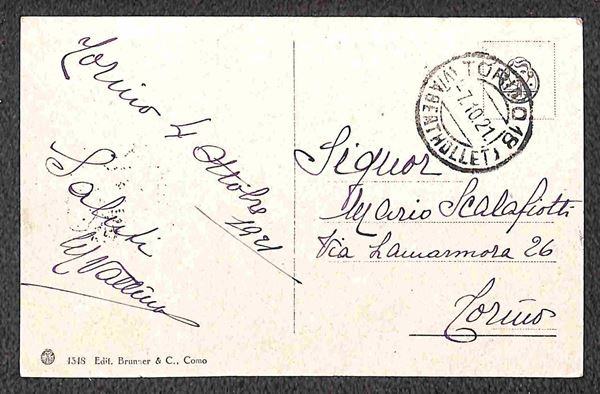 Torino 4 Ottobre
1921
Saluti
TORINO 18
(VIA BERTHOLLET)
-7.10.21
Signor
Mario Scalafiotti
Via Lamarmora 26
Torino
1318 Edit. Brunner & C., Como